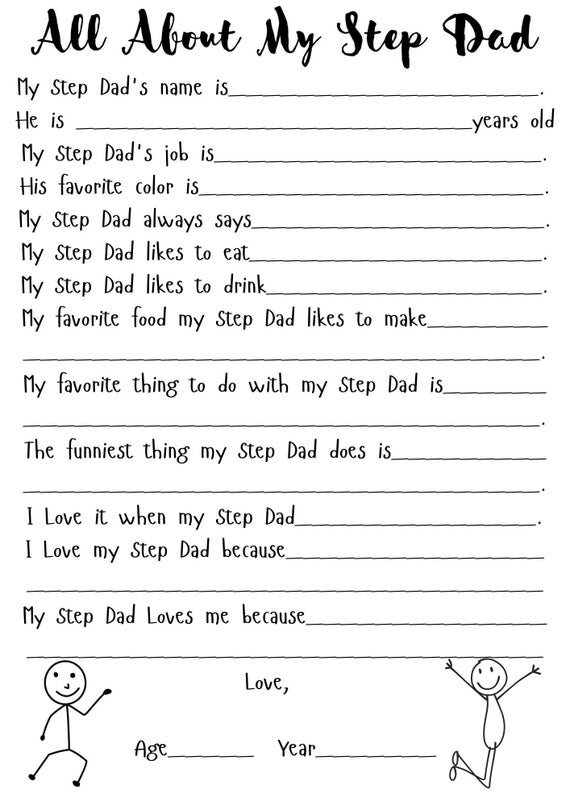 All About My Step Dad
My Step Dad's name is____________________.
He is ____________________years old
My Step Dad's job is____________________.
His favorite color is____________________.
My Step Dad always says____________________.
My Step Dad likes to eat____________________.
My Step Dad likes to drink____________________.
My favorite food my Step Dad likes to make__________
____________________.
My favorite thing to do with my Step Dad is__________
____________________.
The funniest thing my Step Dad does is__________
____________________.
I Love it when my Step Dad____________________.
I Love my Step Dad because____________________
____________________
My Step Dad Loves me because____________________
____________________
Love,
Age________ Year__________